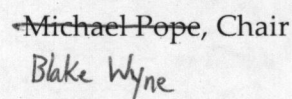 Michael Pope, Chair
Blake Wyne